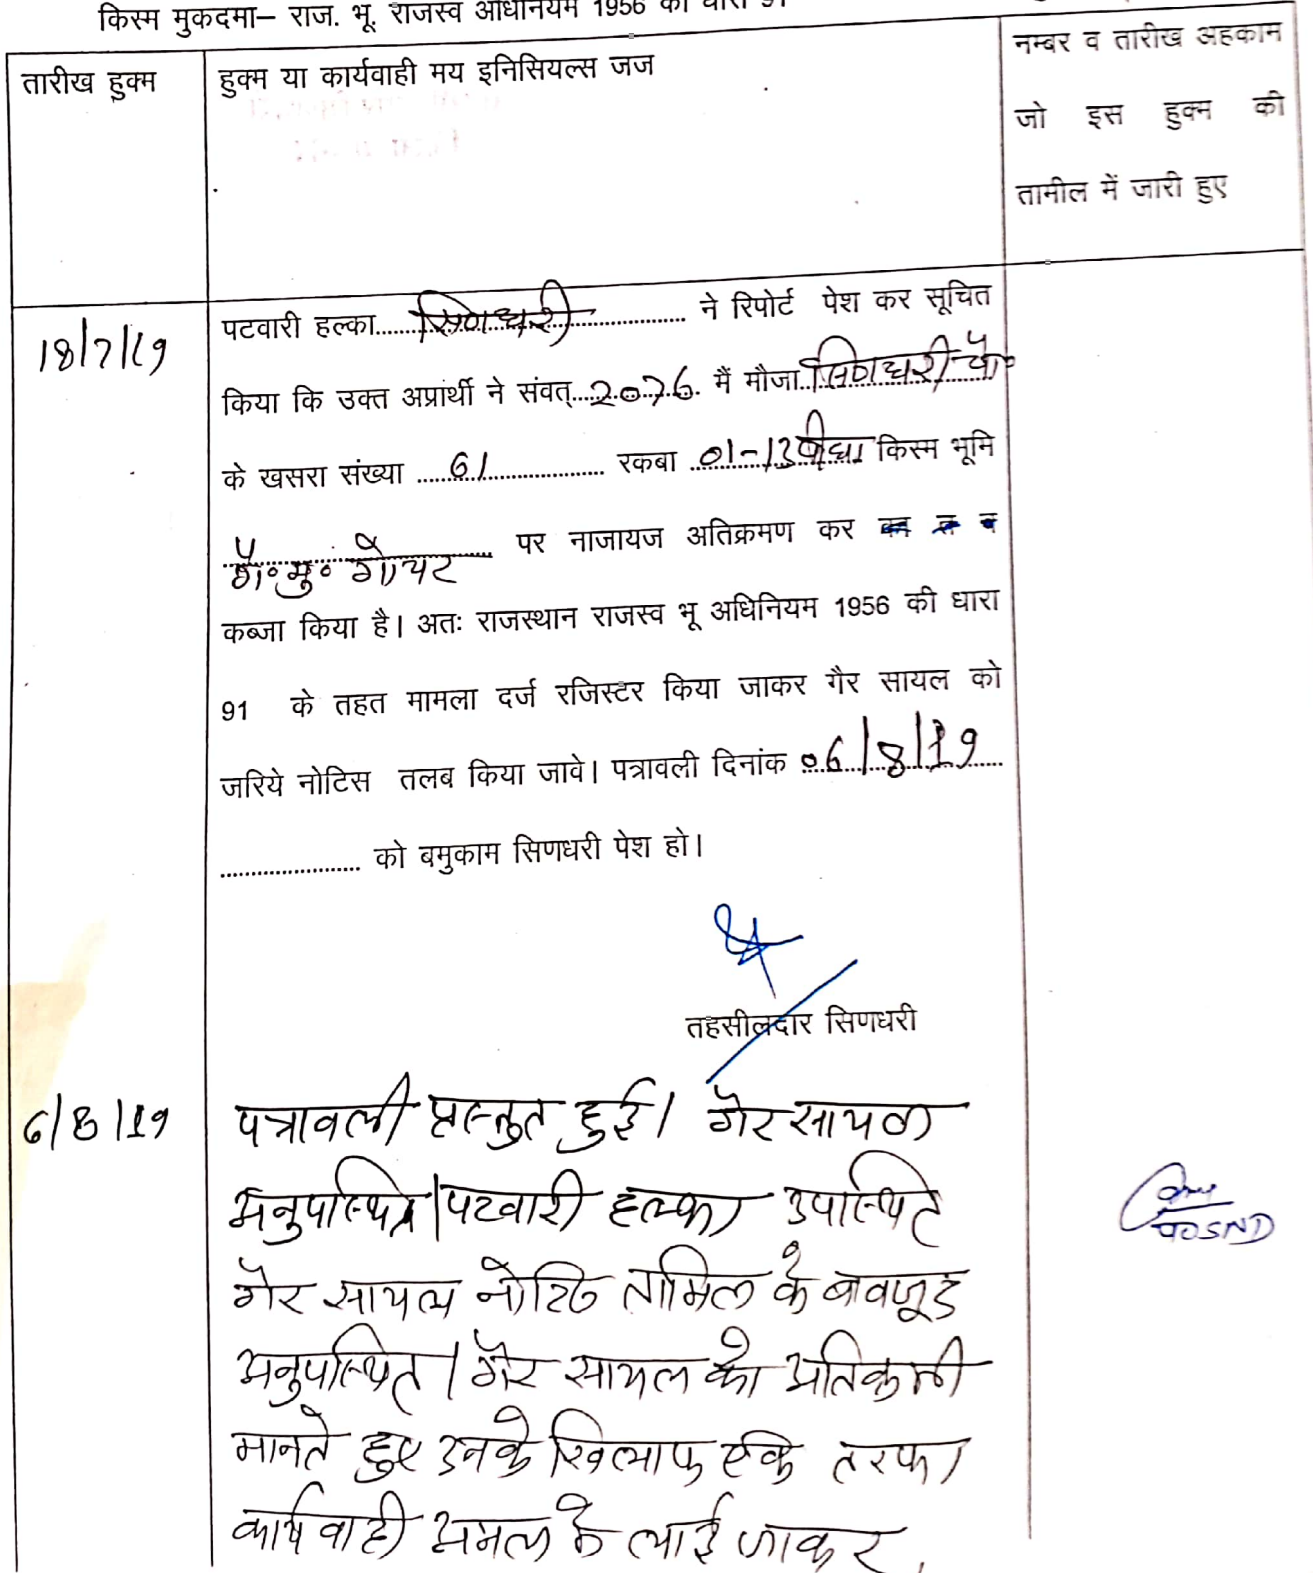 किस्म मुकदमा– राज. भू. राजस्व अधिनियम 1956 की धारा 91
तारीख हुक्म
हुक्म या कार्यवाही मय इनिसियल्स जज
नम्बर व तारीख अहकाम
जो इस हुक्म की
तामील में जारी हुए
18/7/19
पटवारी हल्का.....सिणधरी............... ने रिपोर्ट पेश कर सूचित
किया कि उक्त अप्रार्थी ने संवत्...2076. मैं मौजा..सिणधरी चौ॰
के खसरा संख्या ....61............ रकबा 01-13 बीघा किस्म भूमि
गै॰मु॰ गोचर पर नाजायज अतिक्रमण कर
कब्जा किया है। अतः राजस्थान राजस्व भू अधिनियम 1956 की धारा
91 के तहत मामला दर्ज रजिस्टर किया जाकर गैर सायल को
जरिये नोटिस तलब किया जावे। पत्रावली दिनांक 06/8/19
..................... को बमुकाम सिणधरी पेश हो।
तहसीलदार सिणधरी
6/8/19
पत्रावली प्रस्तुत हुई। गैर सायल
अनुपस्थित। पटवारी हल्का उपस्थित
गैर सायल नोटिस तामिल के बावजूद
अनुपस्थित। गैर सायल को अतिक्रमी
मानते हुए उनके खिलाफ एक तरफा
कार्यवाही अमल में लाई जाकर